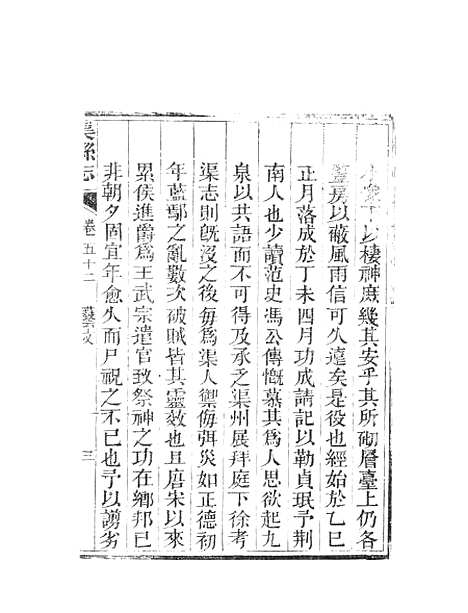 以棲神庶幾其安乎其所砌層臺上仍各
蓋房以蔽風雨信可久遠矣是役也經始於乙巳
正月落成於丁未四月功成請記以勒貞珉予荆
南人也少讀范史馮公傳慨慕其爲人思欲起九
泉以共語而不可得及承乏渠州展拜庭下徐考
渠志則旣沒之後每爲渠人禦侮弭災如正德初
年藍鄢之亂數次破賊皆其靈效也且唐宋以來
累侯進爵爲王武宗遣官致祭神之功在鄉邦已
非朝夕固宜年愈久而尸祝之不已也予以謭劣
渠縣志 卷五十二 藝文 三